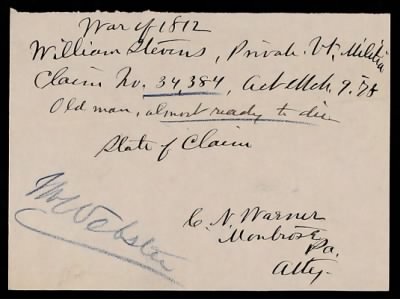 War of 1812
William Stevens, Private. Vt. Militia
Claim No. 34,384, Act Mch. 9. 78
Old man, almost ready to die
State of Claim
Mr Webster
C. N. Warner
Montrose
Pa.
Atty.